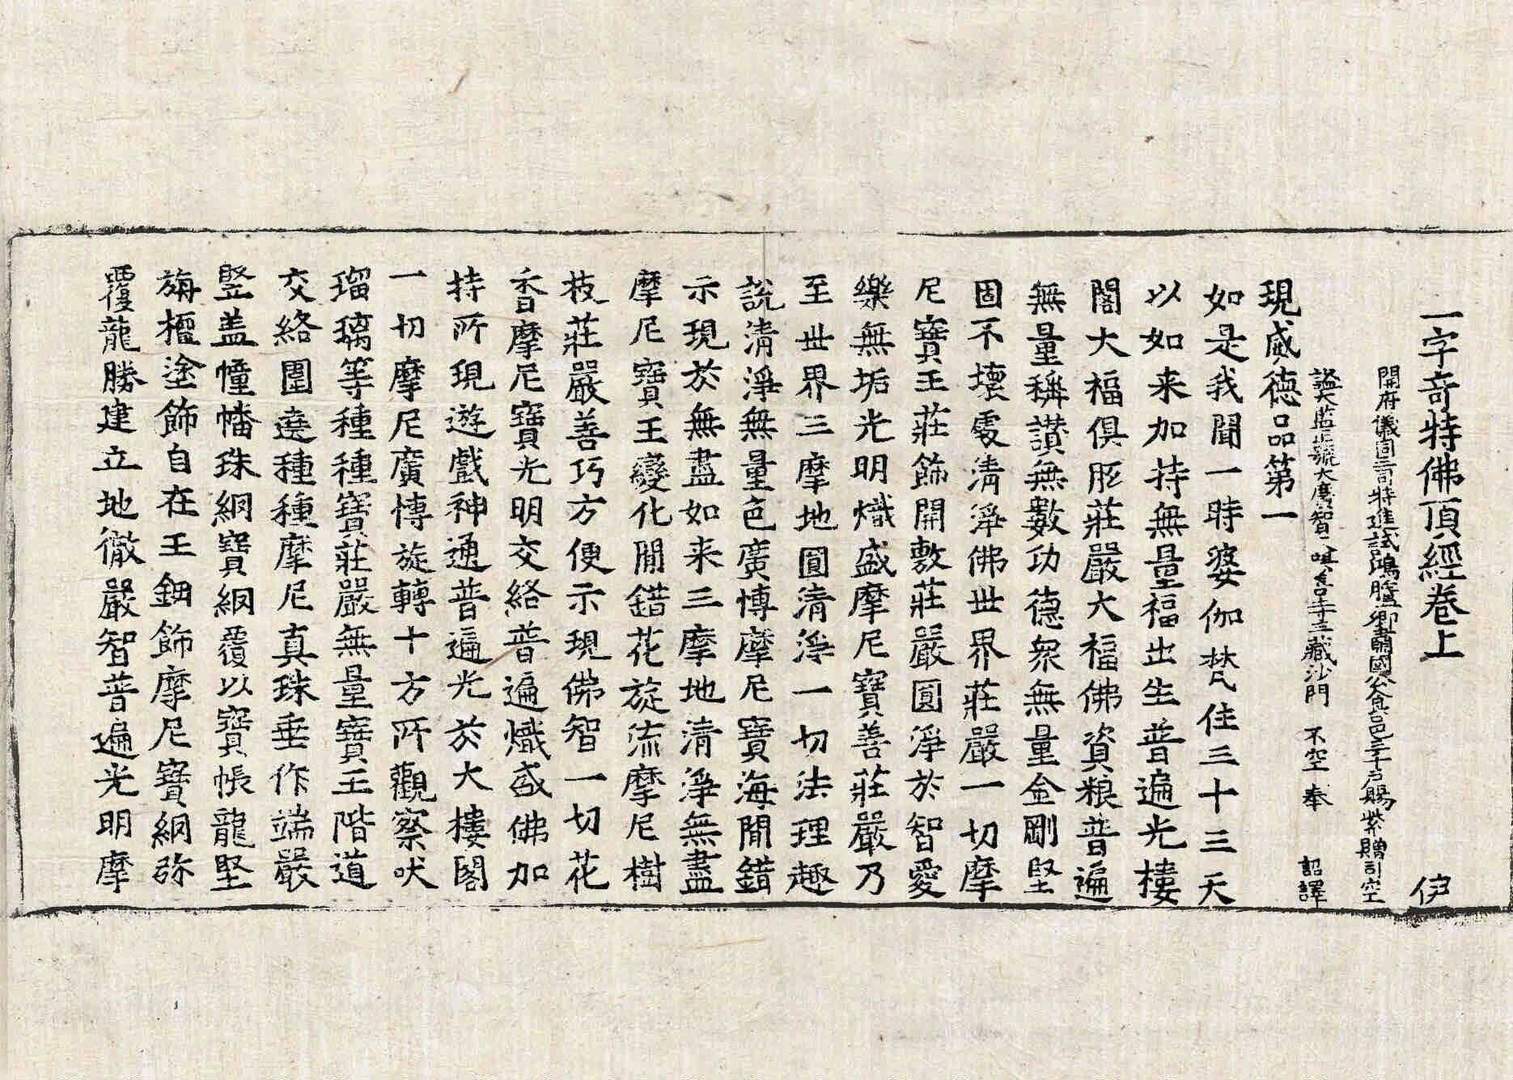 一字奇特佛頂經卷上 伊
開府儀同三司特進試鴻臚卿肅國公食邑三千戶賜紫贈司空
謚大鑒正號大廣智大興善寺三藏沙門 不空 奉 詔譯
現威德品第一
如是我聞一時婆伽梵住三十三天
以如来加持無量福出生普遍光樓
閣大福俱胝莊嚴大福佛資粮普遍
無量稱讃無數功德衆無量金剛堅
固不壞處清淨佛世界莊嚴一切摩
尼寶王莊飾開敷莊嚴圓淨於智愛
樂無垢光明熾盛摩尼寶善莊嚴乃
至世界三摩地圓清淨一切法理趣
說清淨無量色廣博摩尼寶海間錯
示現於無盡如来三摩地清淨無盡
摩尼寶王變化間錯花旋流摩尼樹
枝莊嚴善巧方便示現佛智一切花
香摩尼寶光明交絡普遍熾盛佛加
持所現遊戲神通普遍光於大樓閣
一切摩尼廣博旋轉十方所觀察吠
瑠璃等種種寶莊嚴無量寶王階道
交絡圍遶種種摩尼真珠垂作端嚴
竪盖幢幡珠網寶網覆以寶帳龍堅
旃檀塗飾自在王鈿飾摩尼寶網弥
覆龍勝建立地徹嚴智普遍光明摩